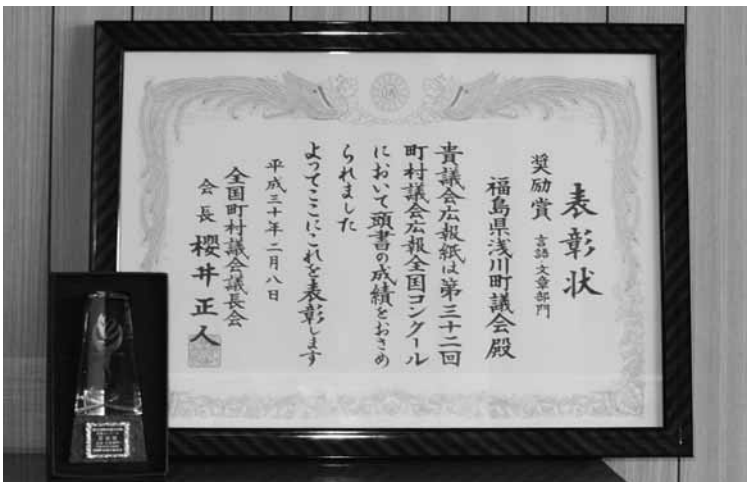 表彰状
奨励賞 言語・文章部門
福島県浅川町議会殿
貴議会広報紙は第三十二回
町村議会広報全国コンクール
において頭書の成績をおさめ
られました
よってここにこれを表彰します
平成三十年二月八日
全国町村議会議長会
会長 櫻井正人